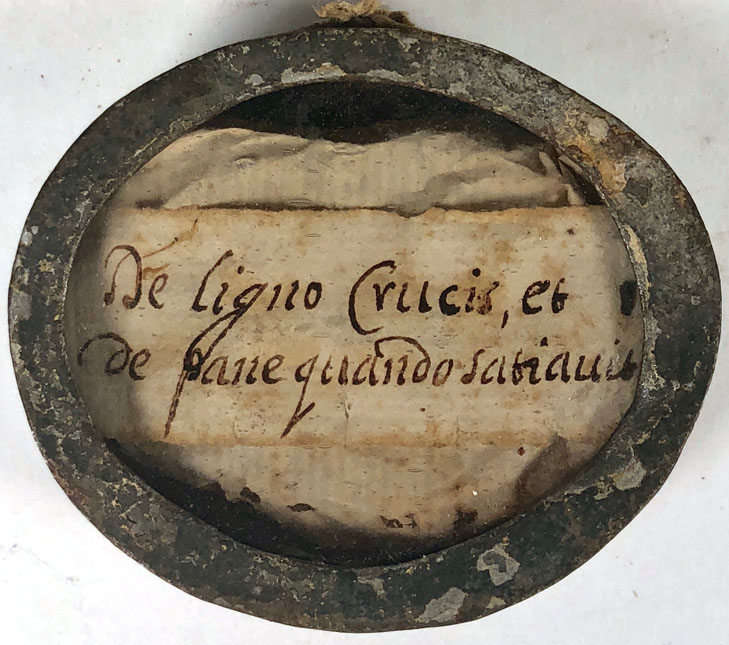 De ligno Crucis, et
de pane quando satiavit